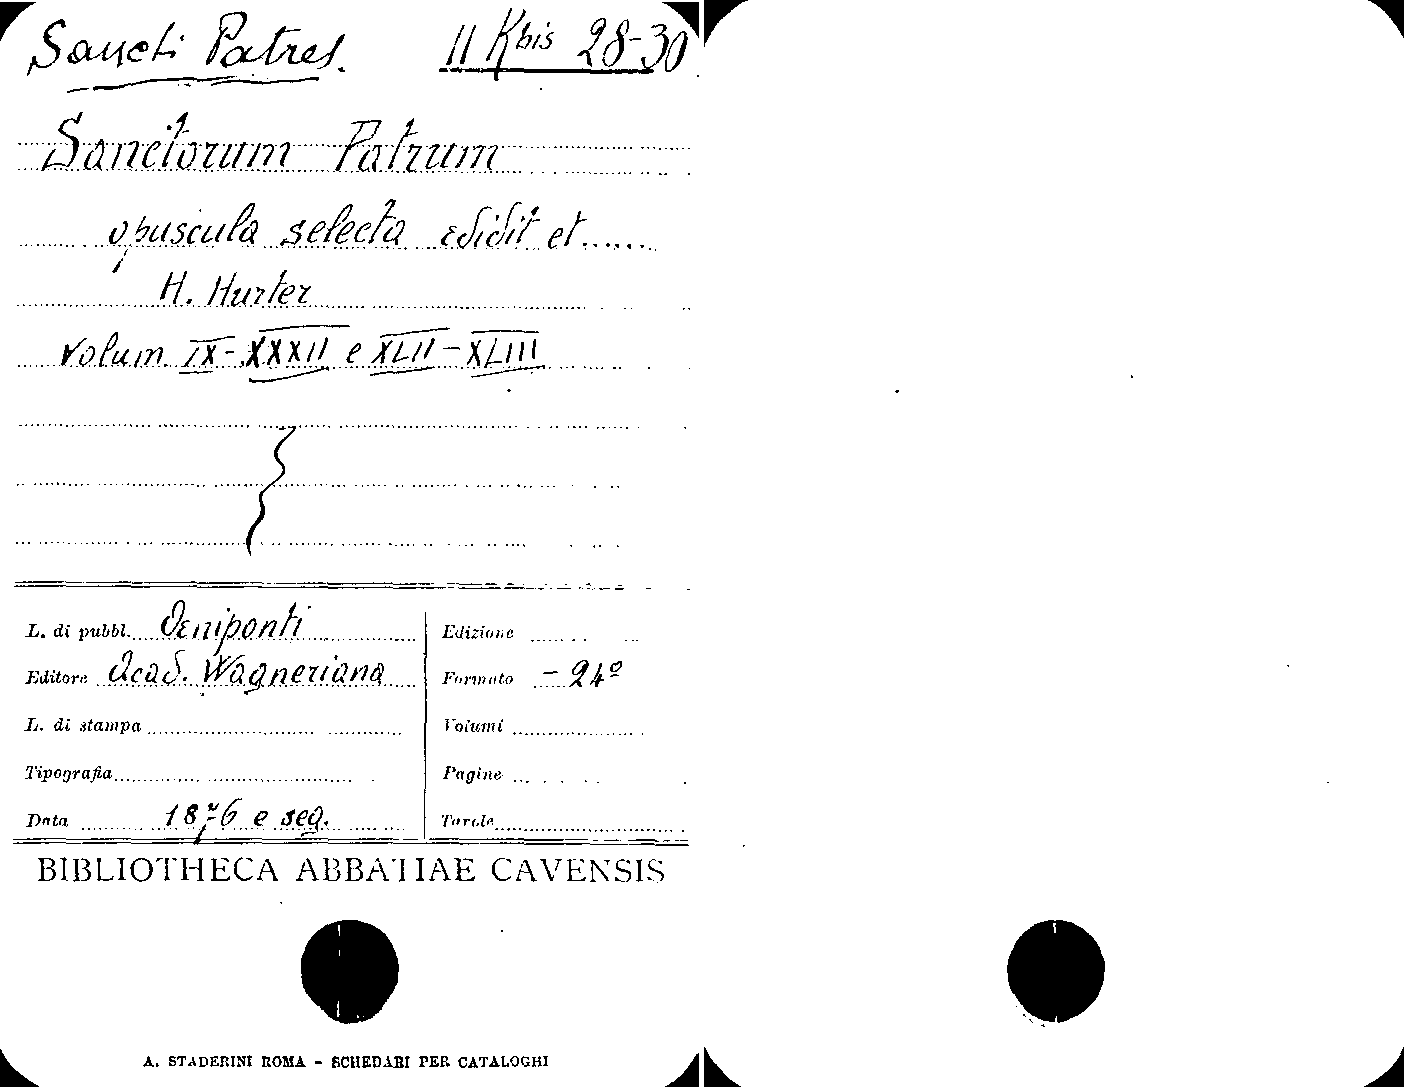 Sancti Patres. II Kbis 28-30
Sanctorum Patrum
opuscula selecta edidit et......
H. Hurter
volum. IX-XXXII e XLII-XLIII
L. di pubbl. Oeniponti
Edizione
Editore Acad. Wagneriana
Formato - 24º
L. di stampa
Volumi
Tipografia
Pagine
Data 1876 e seg.
Tavole
BIBLIOTHECA ABBATIAE CAVENSIS
A. STADERINI ROMA - SCHEDARI PER CATALOGHI